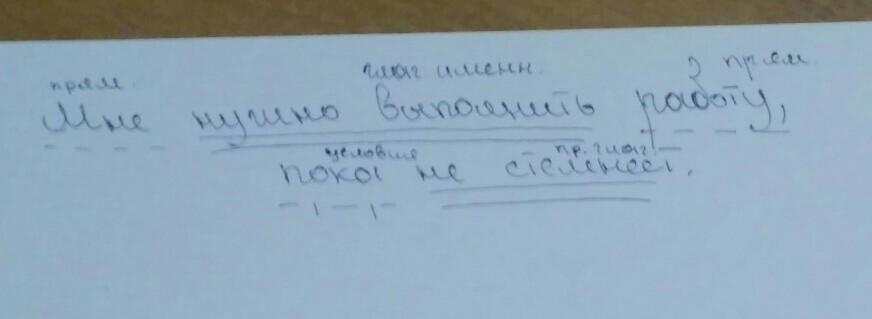 прям. глаг именн. ? прям.
Мне нужно выполнить работу,
условие пр. глаг.
пока не стемнеет.